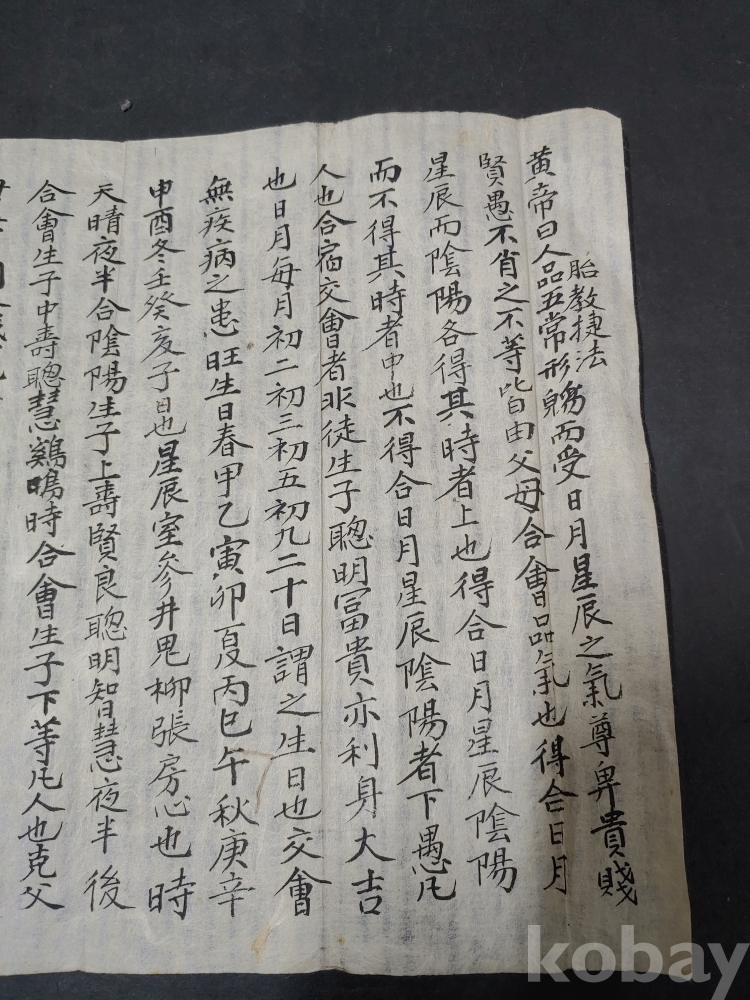 胎教捷法
黄帝曰人品五常形貌而受日月星辰之氣尊卑貴賤
賢愚不肖之不等皆由父母合會品氣也得合日月
星辰而陰陽各得其時者上也得合日月星辰陰陽
而不得其時者中也不得合日月星辰陰陽者下愚凡
人也合宿交會者非徒生子聰明冨貴亦利身大吉
也日月每月初二初三初五初九二十日謂之生日也交會
無疾病之患旺生日春甲乙寅卯夏丙巳午秋庚辛
申酉冬壬癸亥子日也星辰室参井鬼柳張房心也時
天晴夜半合陰陽生子上壽賢良聰明智慧夜半後
合會生子中壽聰慧鷄鳴時合會生子下等凡人也克父
kobay